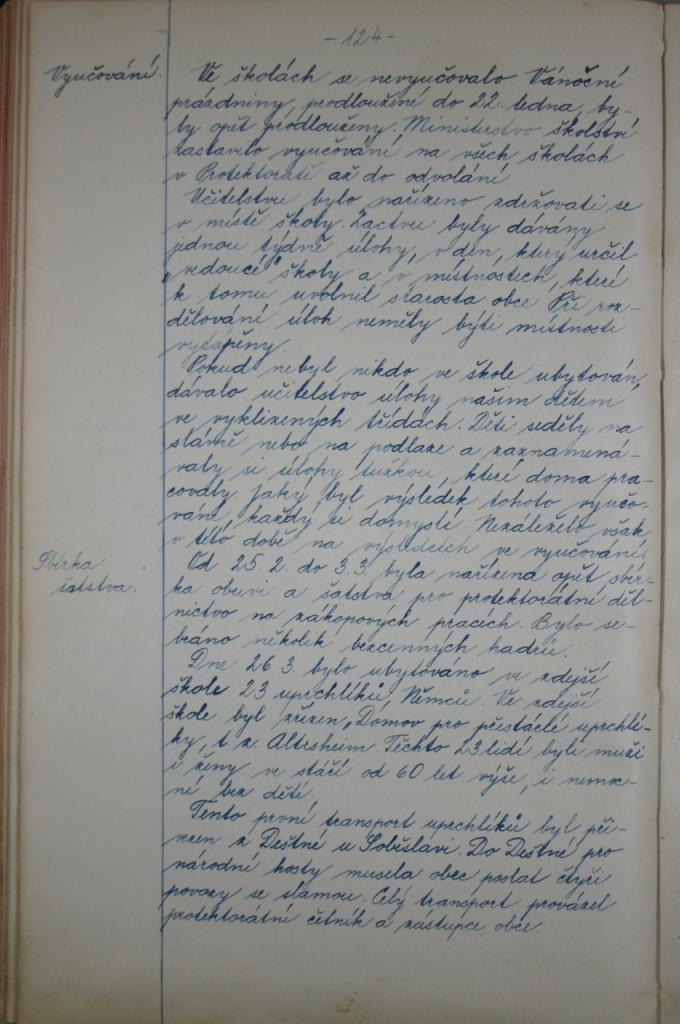 - 124 -
Vyučování.
Ve školách se nevyučovalo. Vánoční
prázdniny, prodloužené do 22. ledna, by-
ly opět prodlouženy. Ministerstvo školství
zastavilo vyučování na všech školách
v Protektorátě až do odvolání.
Učitelstvu bylo nařízeno zdržovati se
v místě školy. Žactvu byly dávány
jednou týdně úlohy, v den, který určil
„vedoucí" školy a v místnostech, které
k tomu uvolnil starosta obce. Při roz-
dělování úloh neměly býti místnosti
vytápěny.
Pokud nebyl nikdo ve škole ubytován,
dávalo učitelstvo úlohy našim dětem
ve vyklizených třídách. Děti seděly na
slámě nebo na podlaze a zaznamená-
valy si úlohy tužkou, které doma pra-
covaly. Jaký byl výsledek tohoto vyučo-
vání, každý si domyslí. Nezáleželo však
v této době na výsledcích ve vyučování.
Sbírka
šatstva.
Od 25. 2. do 3. 3. byla nařízena opět sbír-
ka obuvi a šatstva pro protektorátní děl-
nictvo na zákopových pracích. Bylo se-
bráno několik bezcenných hadrů.
Dne 26. 3. bylo ubytováno ve zdejší
škole 23 uprchlíků, Němců. Ve zdejší
škole byl zřízen „Domov pro přestárlé uprchlí-
ky, t. z. Altrsheim. Těchto 23 lidí byli muži
i ženy ve stáří od 60 let výše, i nemoc-
ní bez dětí.
Tento první transport uprchlíků byl při-
vezen z Deštné u Soběslavi. Do Deštné pro
národní hosty musela obec poslat čtyři
povozy se slámou. Celý transport provázel
protektorátní četník a zástupce obce.